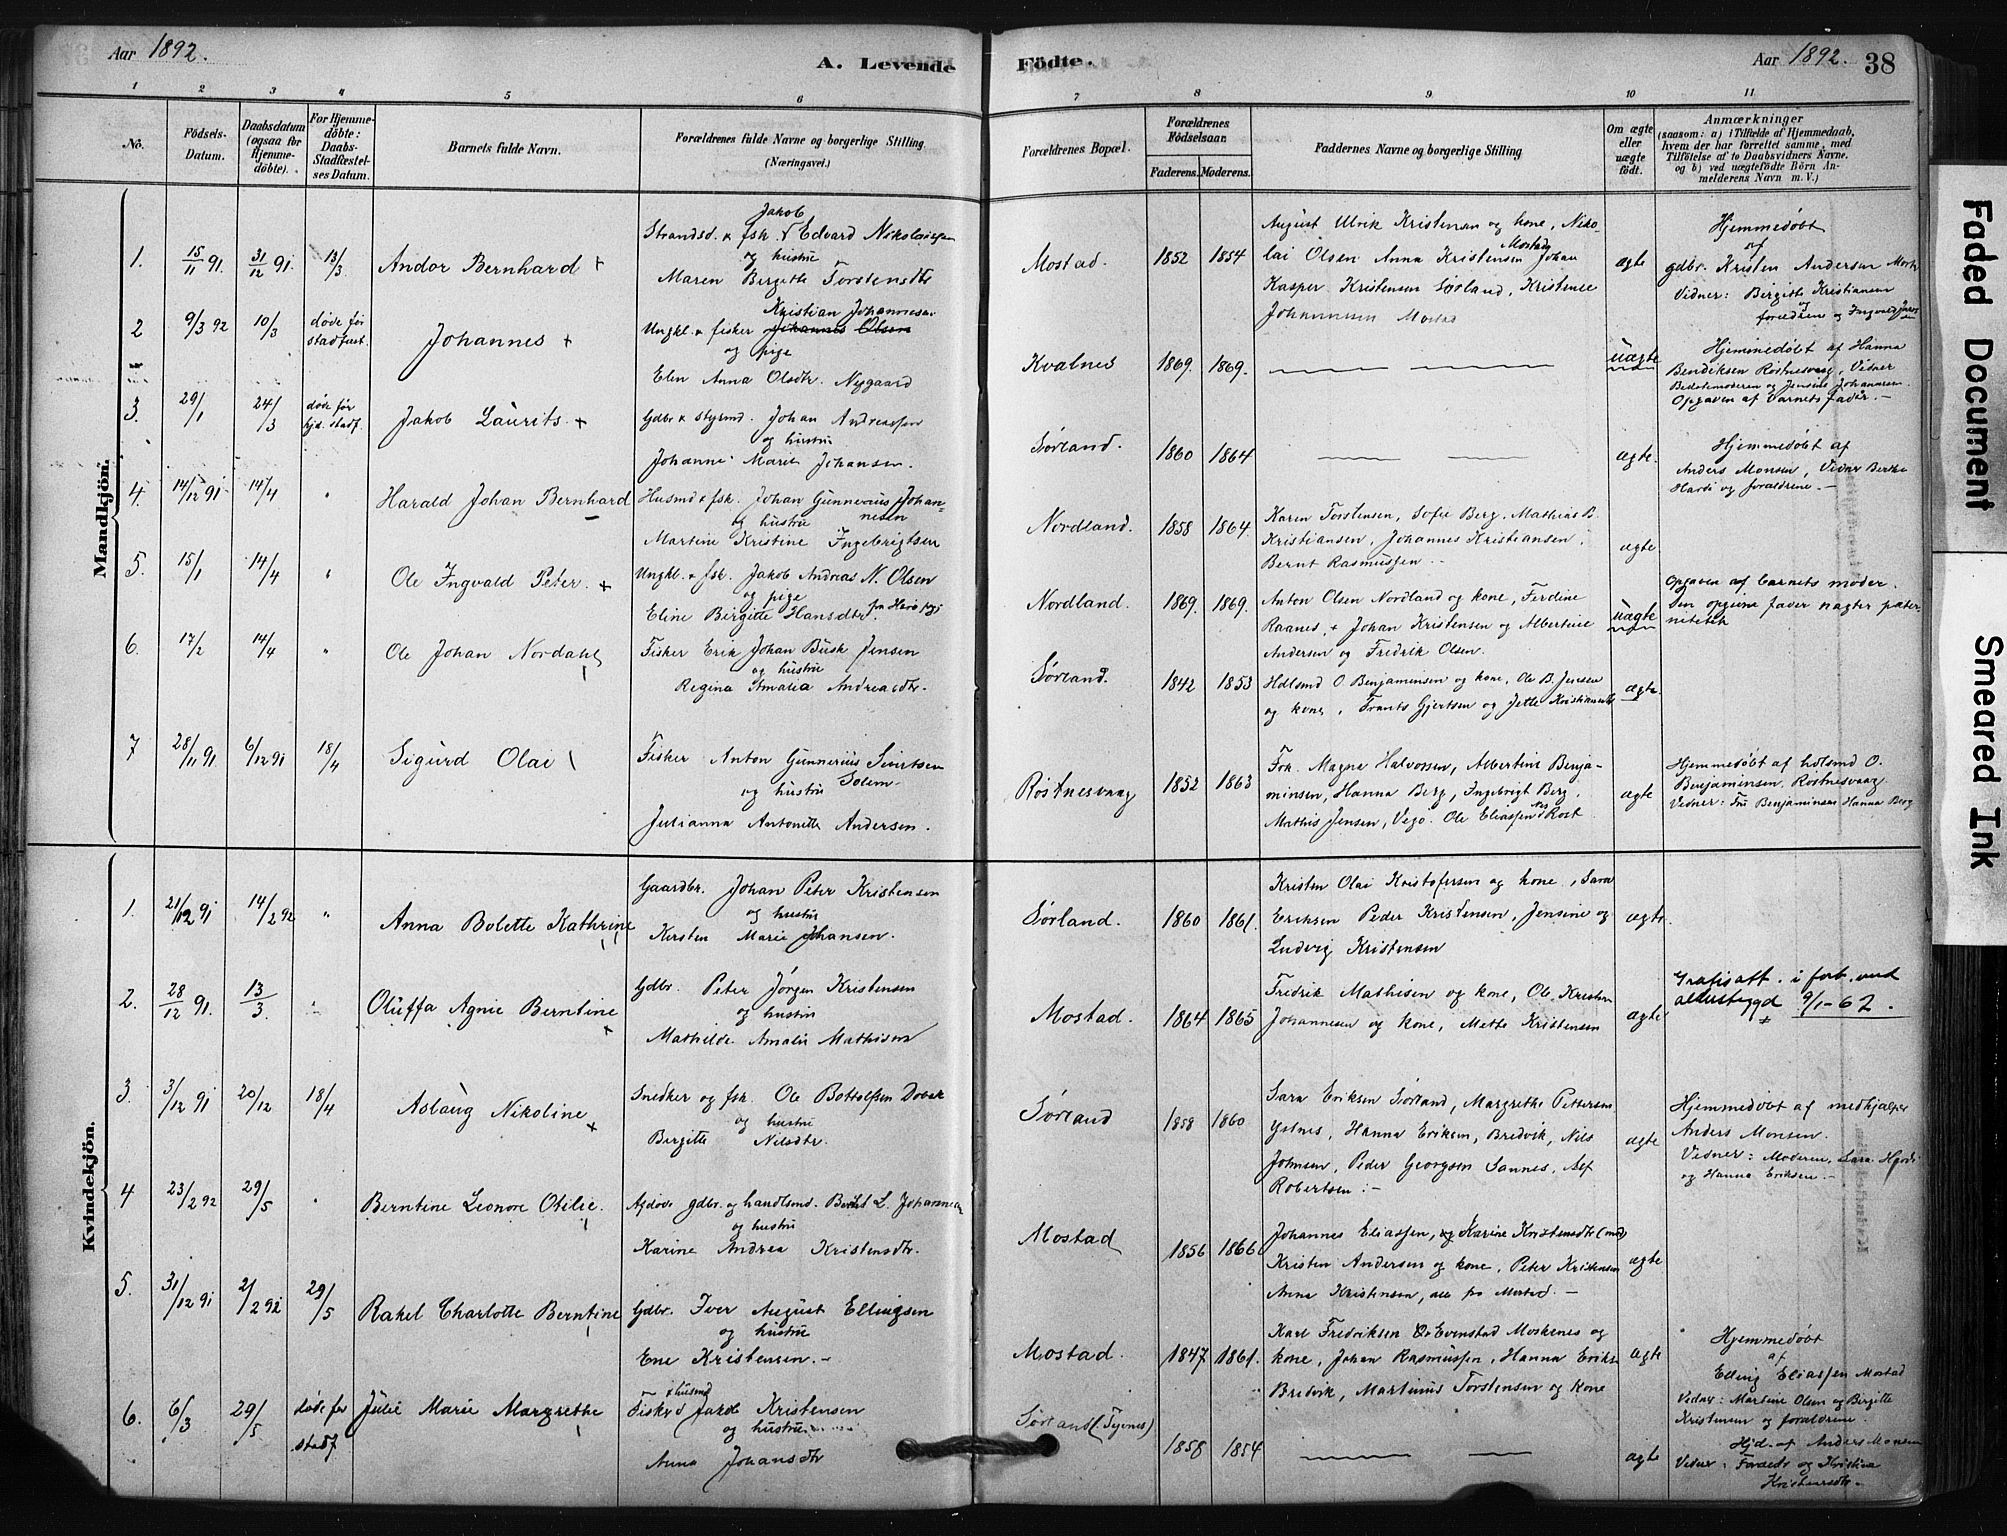 Aar 1892.
A. Levende Födte.
Aar 1892.
38
1 2 3 4 5 6 7 8 9 10 11
No.
Födsels-Datum.
Daabsdatum (ogsaa for Hjemme-döbte).
For Hjemme-döbte: Daabs-Stadfæstel-ses Datum.
Barnets fulde Navn.
Forældrenes fulde Navne og borgerlige Stilling. (Næringsvei.)
Forældrenes Bopæl.
Forældrenes Födselsaar.
Faderens. Moderens.
Faddernes Navne og borgerlige Stilling
Om ægte eller uægte födt.
Anmærkninger
(saasom: a) i Tilfælde af Hjemmedaab, hvem der har forrettet samme, med Tilföielse af to Daabsvidners Navne. og b) ved uægtefödte Börn An-melderens Navn m. V.)
Mandkjön.
1. 15/11 91. 31/12 91. 13/3 Andor Bernhard +
Strandsd. & fsk. Jakob Edvard Nikolaisen
og hustru
Maren Birgitte Torstensdtr
Mostad. 1852 1854
August Ulrik Kristensen og kone, Niko-
lai Olsen Anna Kristensen Mostad, Johan
Kasper Kristensen Sørland, Kristence
Johannesen Mostad
ægte
Hjemmedøbt
af
gdbr. Kristen Andersen Mostad
Vidner: Birgitte Kristiansen
forældrene og Ingvald
2 9/3 92 10/3 døde før stadfæst. Johannes +
Kristian Johannesen
Ungkl. & fisker Johannes Olsen
og pige
Elen Anna Olsdtr. Nygaard
Kvalnes 1869. 1869.
uægte
Hjemmedøbt af Hanna
Bendiksen Røstnesvaag, Vidner
Bedstemoderen og Jensine Johannesen.
Opgaven af Barnets fader. -
3. 29/1 24/3 døde før hjd. stadf. Jakob Laurits. +
Gdbr & styrmd. Johan Andreassen
og hustru
Johanne Marie Johansen.
Sørland. 1860 1864
ægte.
Hjemmedøbt af
Anders Monsen, Vidner
Hardi og forældrene. -
4. 14/12 91 14/4 " Harald Johan Bernhard
Husmd & fsk. Johan Gunnerius Johan-
nesen
og hustru
Martine Kristine Ingebrigtsen
Nordland. 1858 1864.
Karen Torstensen, Sofie Berg, Mathias B.
Kristiansen, Johannes Kristiansen,
Bernt Rasmussen.
ægte
5. 15/1 14/4 " Ole Ingvald Peter. +
Ungkl. & fsk. Jakob Andreas N. Olsen
og pige
Eline Birgitte Hansdtr.
Nordland. 1869. 1869.
Anton Olsen Nordland og kone, Ferdine
Raanes, & Johan Kristensen og Albertine
Andersen og Fredrik Olsen.
uægte
Opgaven af Barnets moder.
Den opgivne fader nægter pater-
nitetet
6. 17/2 14/4 " Ole Johan Nordahl
Fisker Erik Johan Busk Jensen
og hustru
Regina Amalia Andreasdtr.
Sørland. 1842 1853
Hdlsmd O. Benjaminsen og kone, Ole B. Jensen
og kone, Frants Gjertsen og Jette
ægte
7 28/11 91 6/12 91 18/4 Sigurd Olai
Fisker Anton Gunnerius Sivertsen
Solem
og hustru
Julianna Antonette Andersen.
Røstnesvaag 1852 1863
Fsk. Magne Halvorsen, Albertine Benja-
minsen, Hanna Berg, Ingebrigt Berg.
Mathis Jensen, Vego. Ole Eliassen Røst
ægte
Hjemmedøbt af hdlsmd O.
Benjaminsen. Røstnesvaag.
Vidner: Fru Benjaminsen Hanna Berg
Kvindekjön.
1. 21/12 91 14/2 92 " Anna Bolette Kathrine
Gaardbr. Johan Peter Kristensen
og hustru
Kersten Marie Johansen.
Sørland. 1860 1861.
Kristen Olai Kristofersen og kone, Sara
Eriksen Peder Kristensen, Jensine og
Ludvig Kristensen
ægte
2. 28/12 91. 13/3 " Oluffa Agnie Berntine +
Gdbr. Peter Jørgen Kristensen
og hustru
Mathilde Amalie Mathisen
Mostad. 1864 1865
Fredrik Mathisen og kone, Ole Kristen
Johannesen og kone, Mette Kristensen
ægte
Gratisatt. i forb. med
alderstrygd 9/1-62.
3. 3/12 91 20/12 18/4 Aslaug Nikoline +
Snedker og fsk. Ole Bottolfsen
og hustru
Birgitte Nilsdtr.
Sørland 1858 1860
Sara Eriksen Sørland, Margrethe Pettersen
Ystnes, Hanna Eriksen, Bredvik, Nils
Johnsen, Peder Georgsen Sannes, Alf
Robertsen. -
ægte
Hjemmedøbt af medhjælper
Anders Monsen.
Vidner: Moderen, Sara Hardi
og Hanna Eriksen. -
4 23/2 92 29/5 " Berntine Leonore Otilie.
Afdøde gdbr. og handlsmd. Bernt L. Johannesen
og hustru
Karine Andrea Kristensdtr.
Mostad 1856 1866
Johannes Eliassen, og Karine Kristensdtr
Kristen Andersen og kone, Peter Kristensen
Anna Kristensen, alle fra Mostad. -
ægte
5. 31/12 91 2/2 92 29/5 Rakel Charlotte Berntine
Gdbr. Iver August Ellingsen
og hustru
Ene Kristensen. -
Mostad. 1847 1861.
Karl Fredriksen Evenstad Moskenes og
kone, Johan Rasmussen, Hanna Eriks.
Bredvik, Martinus Torstensen og kone
ægte
Hjemmedøbt
af
Elling Eliassen Mostad
Vidner: Martine Olsen og Birgitte
Kristensen og forældrene.
6. 6/3 29/5 døde før stadf Julie Marie Margrethe
& husmd
Fisker Jakob Kristensen
og hustru
Anna Johansdtr
Sørland (Tyvnes) 1858 1854
ægte
Hjd. af Anders Monsen
Vidner: Forældr og Kristine
Kristensdtr. -
Faded Document
Smeared Ink